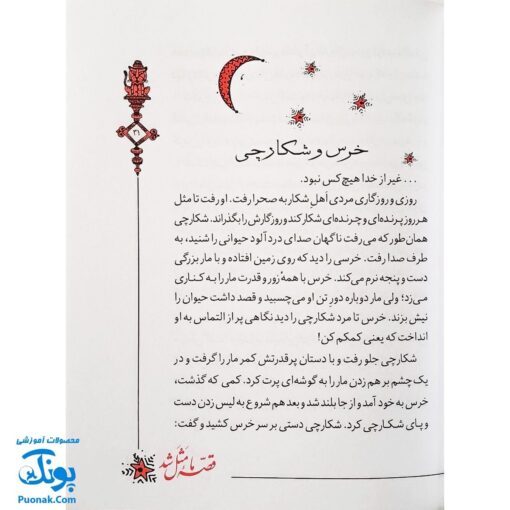 ۳۱
خرس و شکارچی
... غیر از خدا هیچ کس نبود.
روزی و روزگاری مردی اَهلِ شکار به صحرا رفت. او رفت تا مثل
هر روز پرنده‌ای و چرنده‌ای شکار کند و روزگارش را بگذراند. شکارچی
همان‌طور که می‌رفت ناگهان صدای درد آلود حیوانی را شنید، به
طرف صدا رفت. خرسی را دید که روی زمین افتاده و با مار بزرگی
دست و پنجه نرم می‌کند. خرس با همهٔ زور و قدرت مار را به کناری
می‌زد؛ ولی مار دوباره دورِ تن او می‌چسبید و قصد داشت حیوان را
نیش بزند. خرس تا مرد شکارچی را دید نگاهی پر از التماس به او
انداخت که یعنی کمکم کن!
شکارچی جلو رفت و با دستان پرقدرتش کمر مار را گرفت و در
یک چشم بر هم زدن مار را به گوشه‌ای پرت کرد. کمی که گذشت،
خرس به خود آمد و از جا بلند شد و بعد هم شروع به لیس زدن دست
و پای شکارچی کرد. شکارچی دستی بر سر خرس کشید و گفت:
قصه ما مَثَل شد
محصولات آموزشی
پونک
Puonak.Com